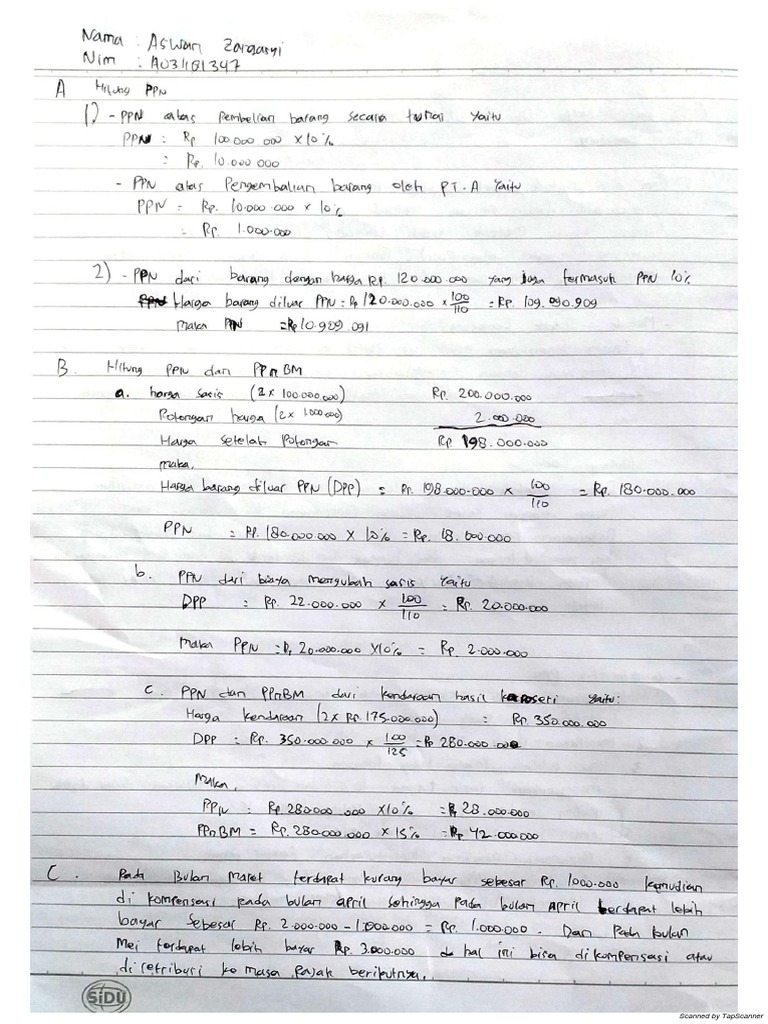 Nama : Aswan Zargasyi
Nim : A031181347
A Hitung PPN
1) - PPN atas Pembelian barang secara tunai yaitu
PPN : Rp 100.000.000 x 10%
: Rp. 10.000.000
- PPN atas Pengembalian barang oleh PT.A yaitu
PPN = Rp. 10.000.000 x 10%
= Rp. 1.000.000
2) - PPN dari barang dengan harga Rp. 120.000.000 yang juga termasuk PPN 10%
Harga barang diluar PPN = Rp 120.000.000 x 100/110 = Rp. 109.090.909
Maka PPN = Rp 10.909.091
B. Hitung PPN dan PPnBM
a. harga sasis (2 x 100.000.000) Rp. 200.000.000
Potongan harga (2 x 1.000.000) 2.000.000
Harga setelah Potongan Rp 198.000.000
maka,
Harga barang diluar PPN (DPP) = Rp. 198.000.000 x 100/110 = Rp. 180.000.000
PPN = Rp. 180.000.000 x 10% = Rp. 18.000.000
b. PPN dari biaya mengubah sasis yaitu
DPP = Rp. 22.000.000 x 100/110 = Rp. 20.000.000
Maka PPN = Rp 20.000.000 x 10% = Rp. 2.000.000
c. PPN dan PPnBM dari kendaraan hasil karoseri yaitu:
Harga kendaraan (2 x Rp. 175.000.000) = Rp 350.000.000
DPP = Rp. 350.000.000 x 100/125 = Rp 280.000.000
Maka,
PPN = Rp. 280.000.000 x 10% = Rp 28.000.000
PPnBM = Rp. 280.000.000 x 15% = Rp 42.000.000
C. Pada Bulan Maret terdapat kurang bayar sebesar Rp. 1000.000 kemudian
di kompensasi pada bulan april sehingga pada bulan April terdapat lebih
bayar sebesar Rp. 2.000.000 - 1.000.000 = Rp. 1.000.000. Dan Pada bulan
Mei terdapat lebih bayar Rp. 3.000.000 hal ini bisa di kompensasi atau
di retribusi ke masa pajak berikutnya.
SiDU
Scanned by TapScanner